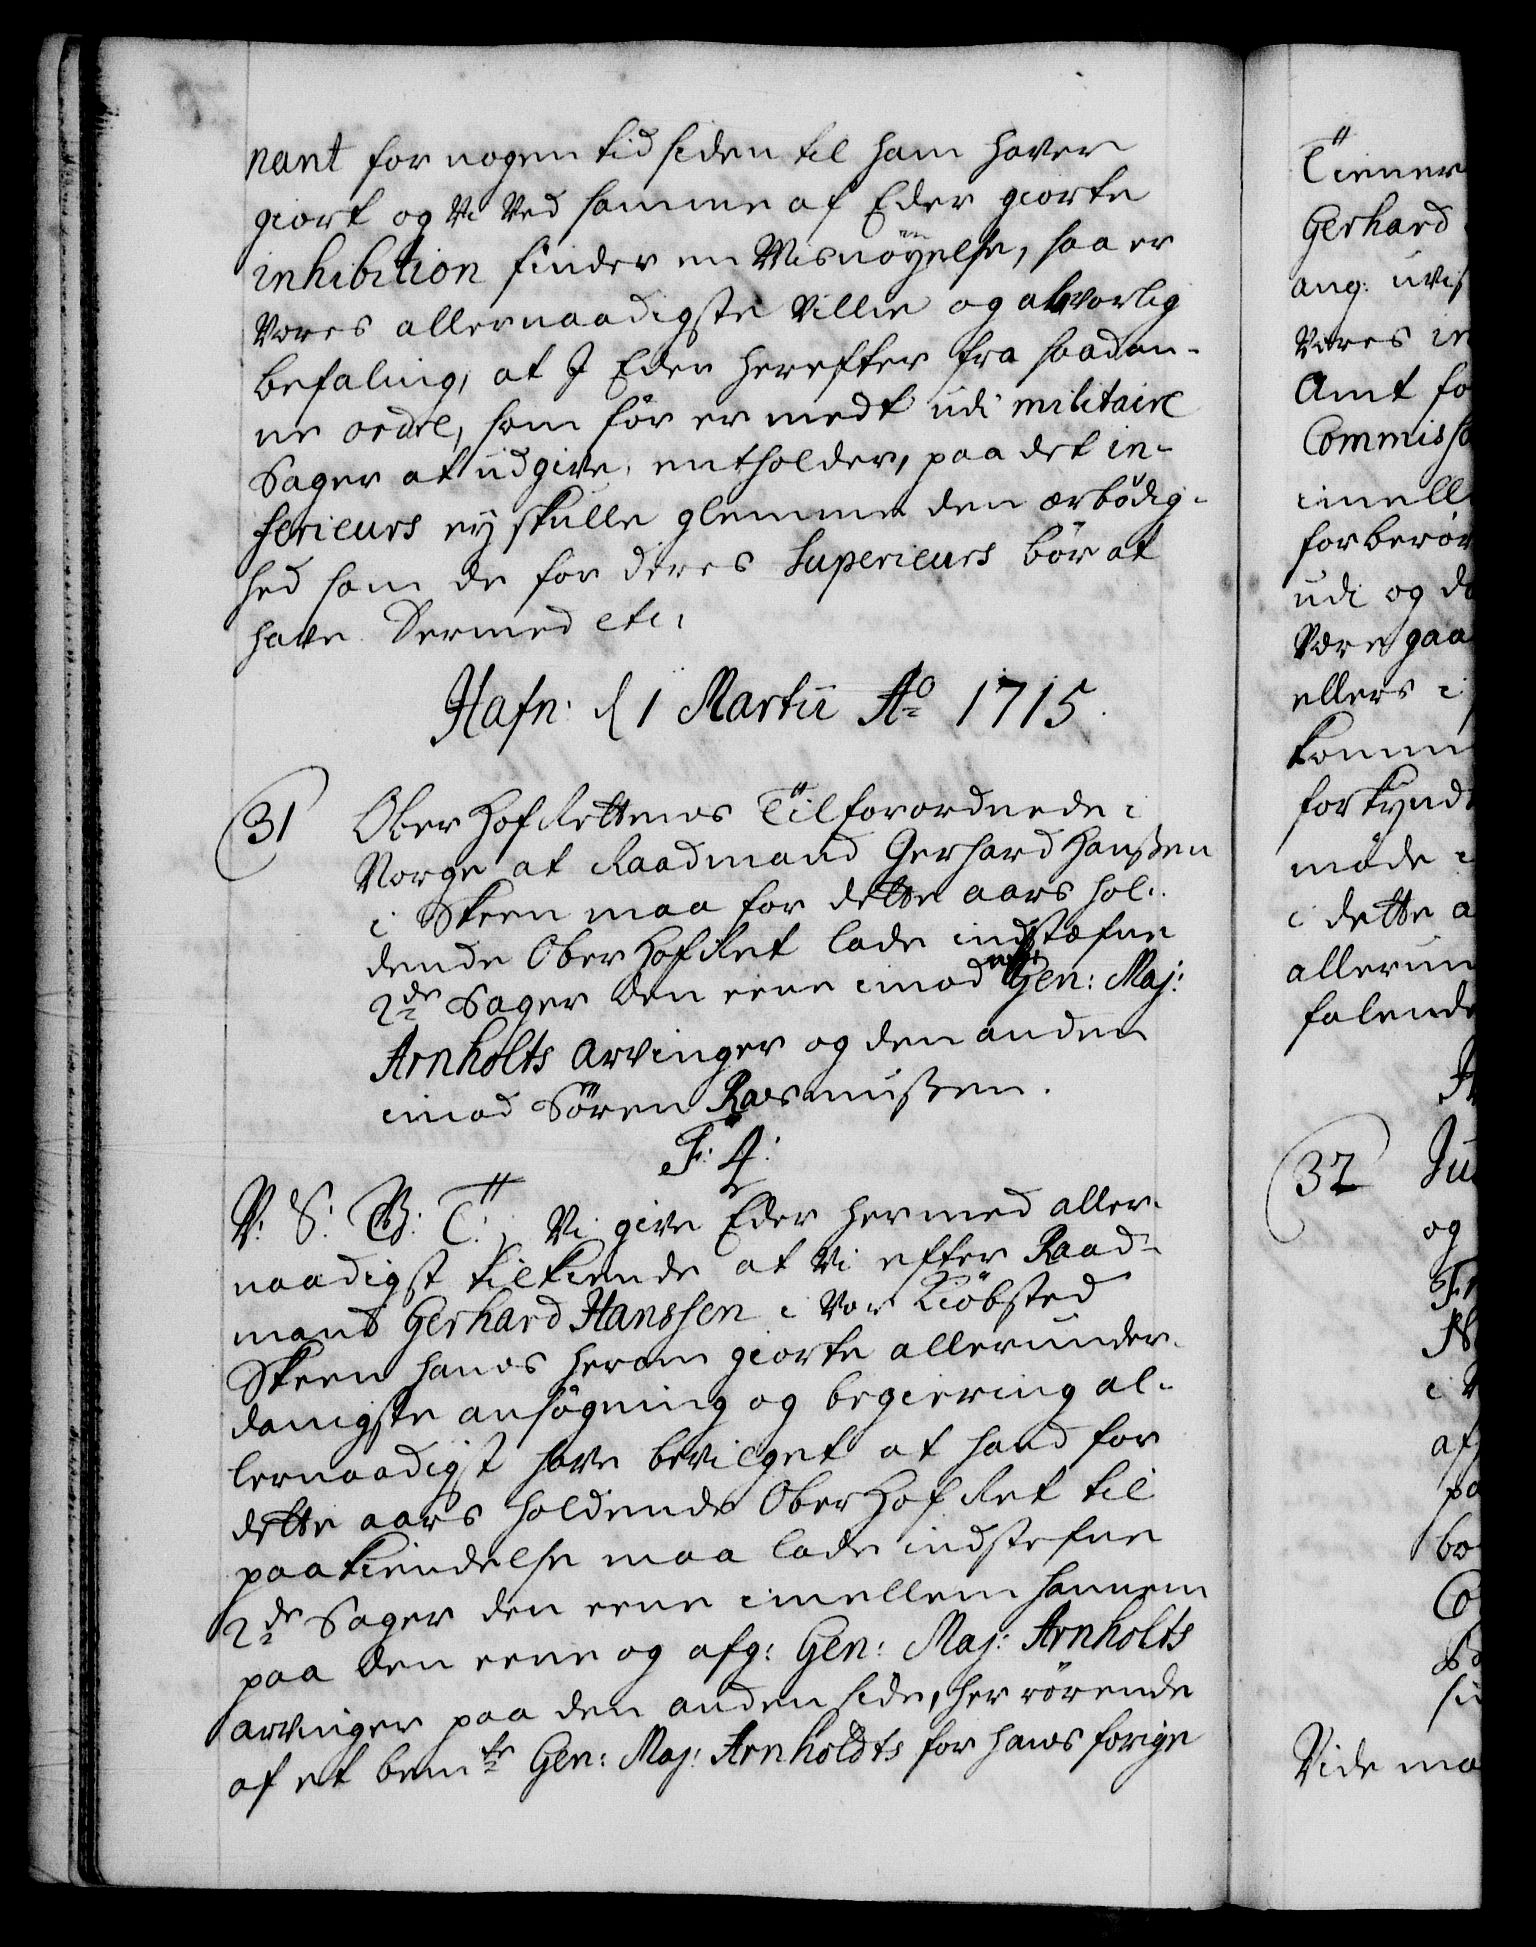 nant for nogen tid siden til ham haver
giort og Vi Ved samme af Eder giorte
inhibition finder en Misnöyelse, saa er
Vores allernaadigste Villie og alvorlig
befaling, at I Eder herefter fra saadan-
ne ordre, som för er meldt udi militaire
Sager at udgive, entholder, paa det in-
ferieurs ey skulle glemme den ærbödig-
hed som de for deres Superieurs bör at
have. Dermed etc:
Hafn: d 1 Martii Ao 1715.
31
Ober Hof Rettens Tilforordnede i
Norge at Raadmand Gerhard Hanssen
i Skeen maa for dette aars hol-
dende Ober Hof Ret lade indstæfne
2de Sager den eene imod Gen: Maj:
Arnholts Arvinger og den anden
imod Sören Rasmussen.
F: 4:
V: S: G: T: Vi give Eder hermed aller-
naadigst tilkiende at Vi efter Raad-
mand Gerhard Hanssen i Vor Kiöbsted
Skeen hans herom giorte allerunder-
danigste ansögning og begiering al-
lernaadigst have bevilget at hand for
dette aars holdende Ober Hof Ret til
paakiendelse maa lade indstefne
2de Sager den eene imellem hannem
paa den eene og afg: Gen: Maj: Arnholts
arvinger paa den anden side, herrörende
af et bemte Gen: Maj: Arnholdts for hans forige
Tiener
Gerhard
ang: uvis
Vores in
Amt fo
Commissa
imell
forberör
udi og d
Være gaa
ellers i
komm
forkynd
möde i
i dette a
allerun
falende
32
Ju
og
Vide ma